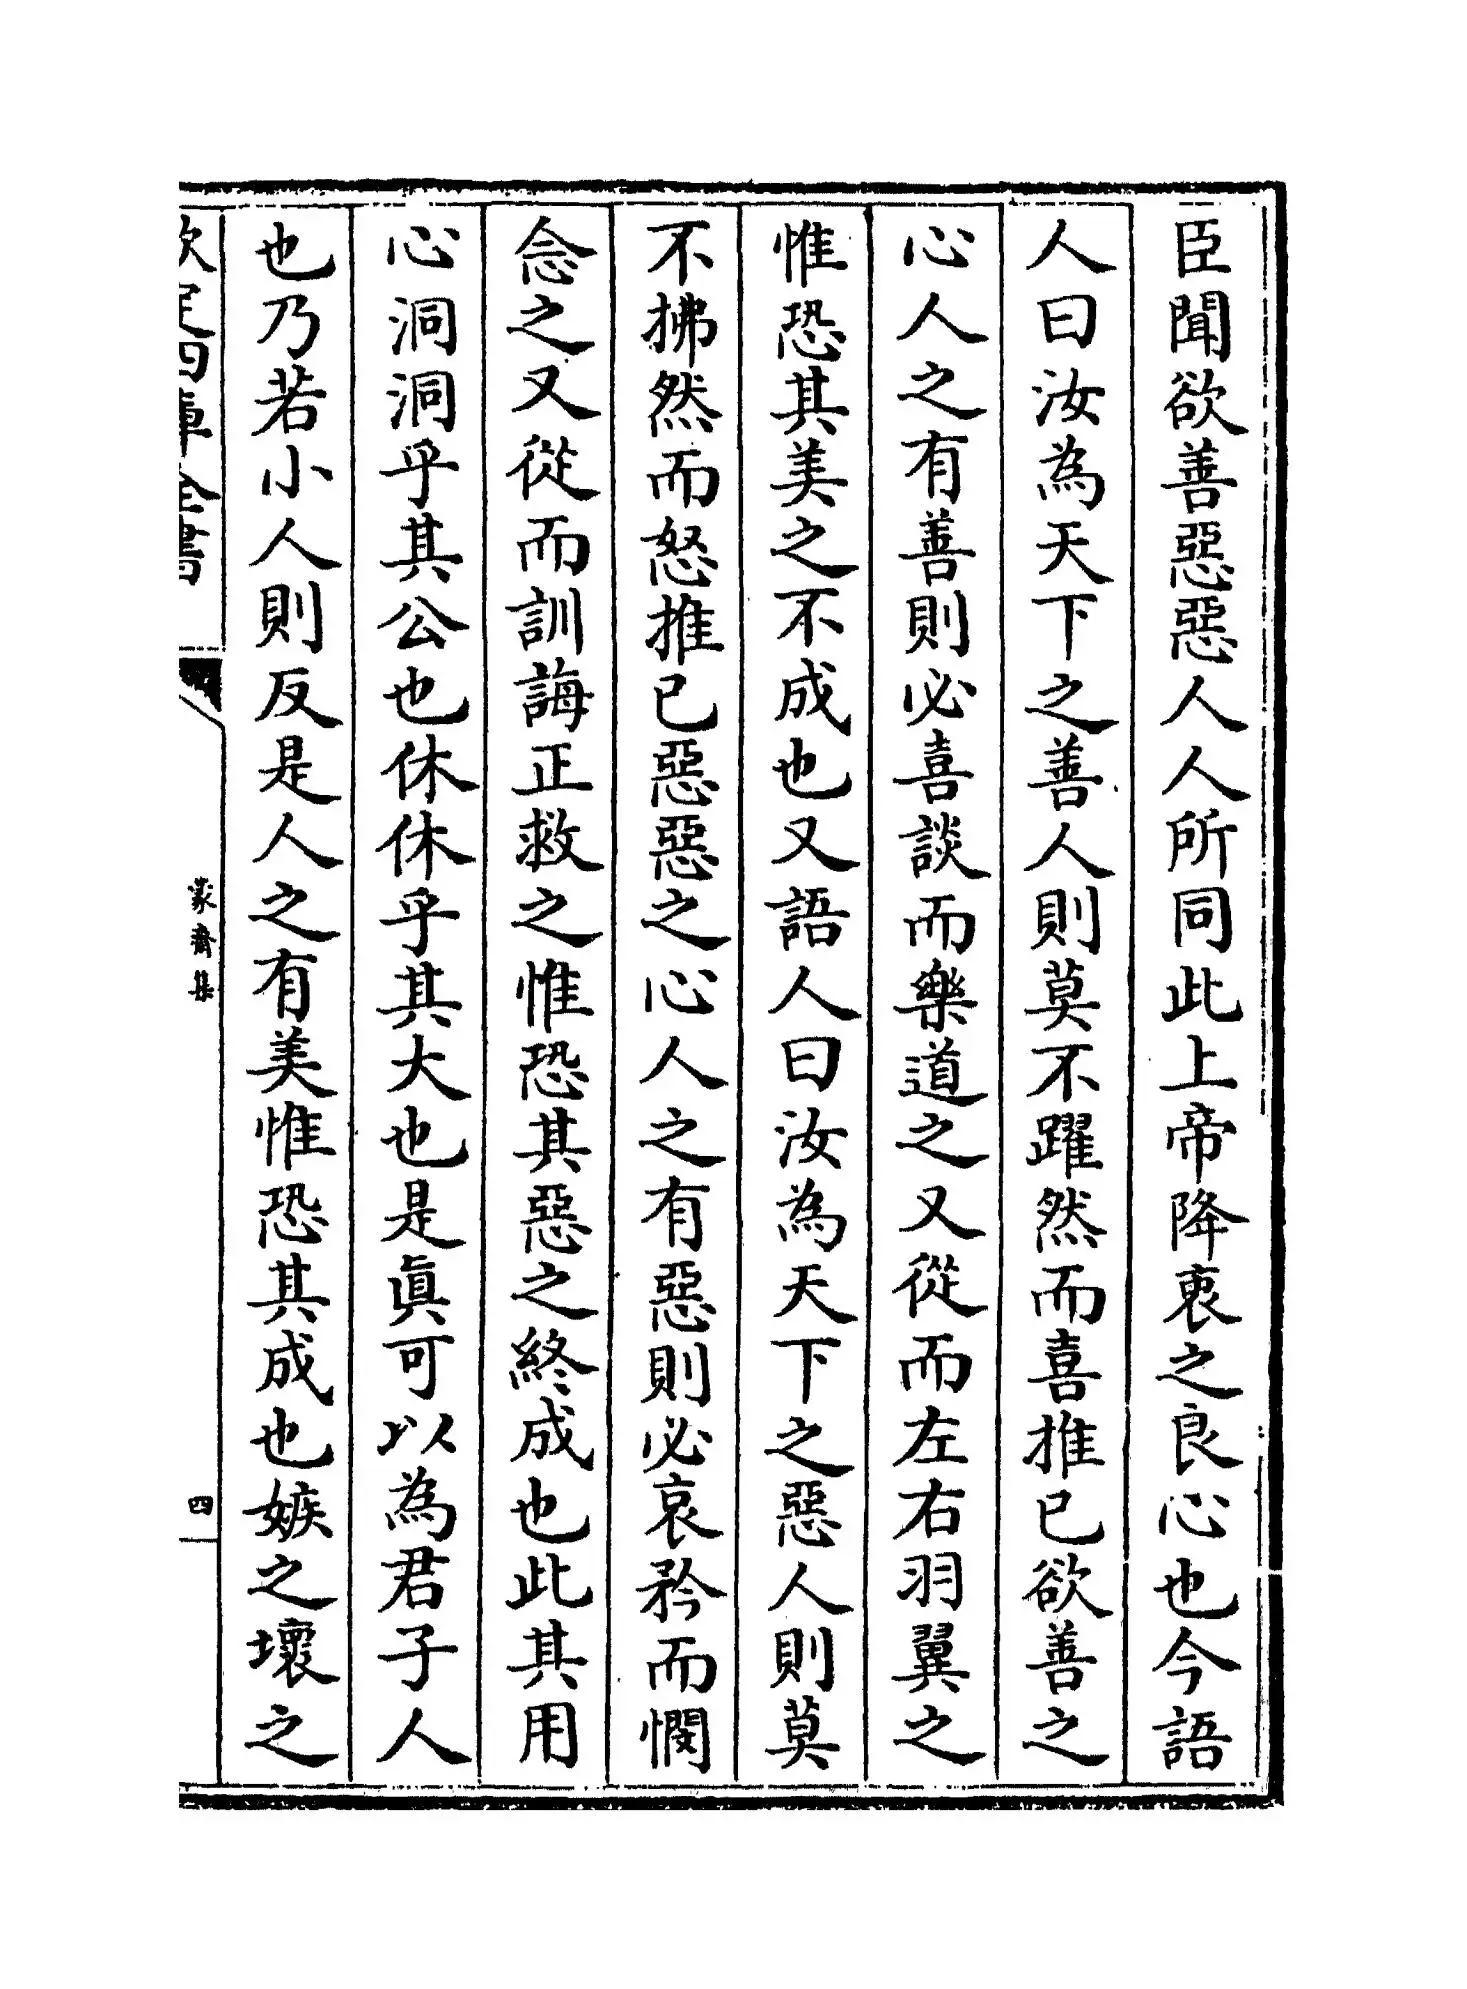 臣聞欲善惡惡人人所同此上帝降衷之良心也今語
人曰汝為天下之善人則莫不躍然而喜推已欲善之
心人之有善則必喜談而樂道之又從而左右羽翼之
惟恐其美之不成也又語人曰汝為天下之惡人則莫
不拂然而怒推已惡惡之心人之有惡則必哀矜而憫
念之又從而訓誨正救之惟恐其惡之終成也此其用
心洞洞乎其公也休休乎其大也是眞可以為君子人
也乃若小人則反是人之有美惟恐其成也嫉之壞之
欽定四庫全書
蒙齋集
四